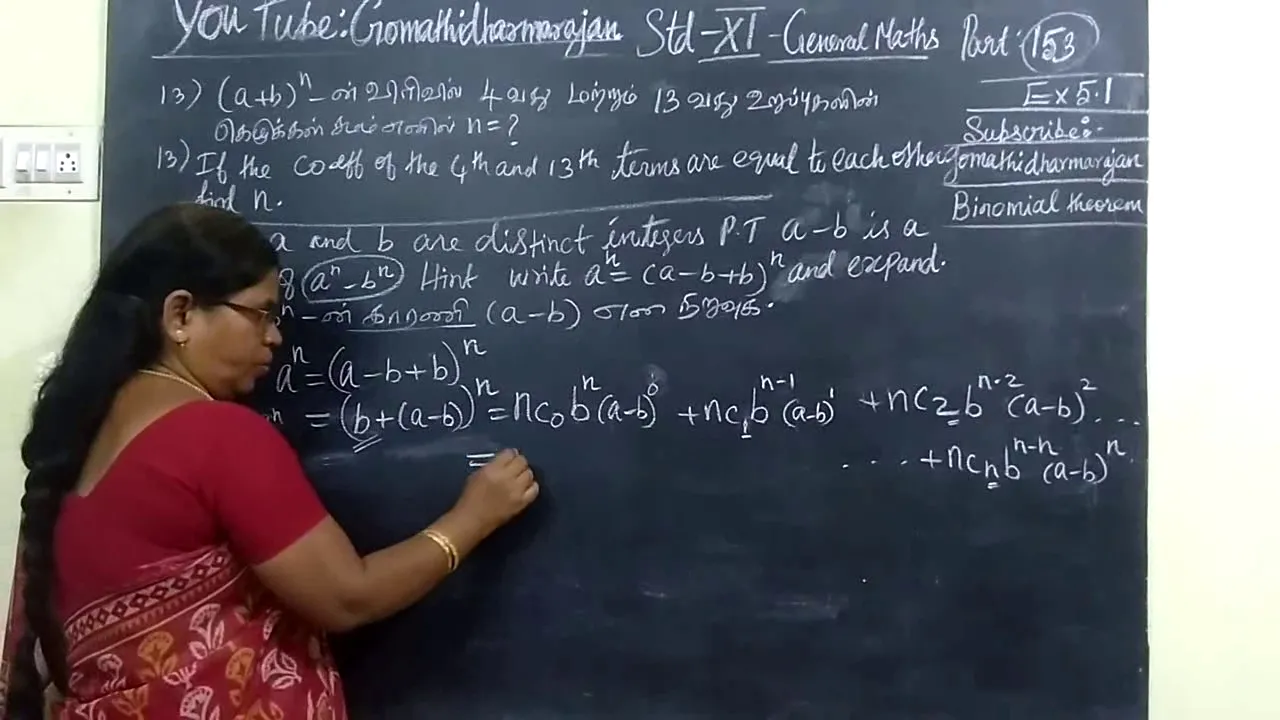 You Tube: Gomathidharmarajan Std - XI - General Maths Part: 153
Ex 5.1
Subscribe:-
gomathidharmarajan
Binomial theorem
13) (a+b)ⁿ - ன் விரிவில் 4 வது மற்றும் 13 வது உறுப்புகளின்
கெழுக்கள் சமம் எனில் n = ?
13) If the coeff of the 4th and 13th terms are equal to each other
find n.
a and b are distinct integers P.T a-b is a
(aⁿ - bⁿ) Hint write aⁿ = (a-b+b)ⁿ and expand.
ⁿ - ன் காரணி (a-b) என நிறுவுக.
aⁿ = (a-b+b)ⁿ
ⁿ = (b+(a-b))ⁿ = nc₀bⁿ(a-b)⁰ + nc₁bⁿ⁻¹(a-b)¹ + nc₂bⁿ⁻²(a-b)² ....
.... + ncₙbⁿ⁻ⁿ(a-b)ⁿ.
=